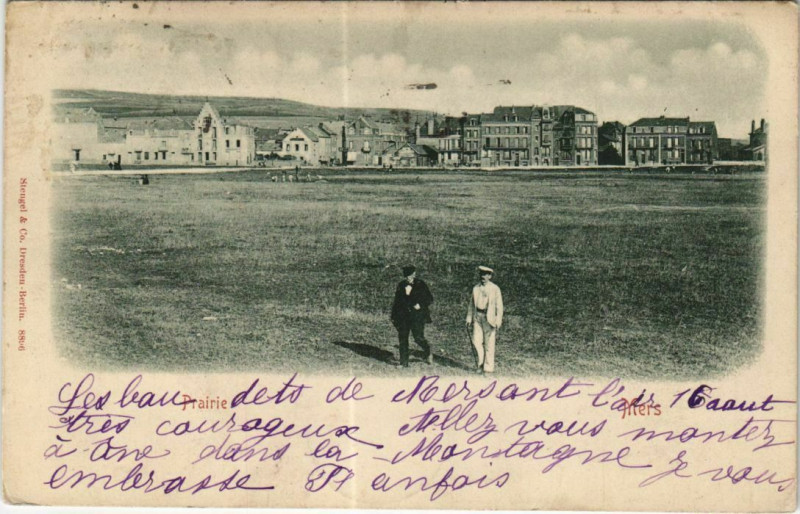 Stengel & Co. Dresden-Berlin. 8896
Prairie
Mers
Les bau dets de Mers ont l'air 16 aout
très courageux Allez vous montez
à âne dans la Montagne Je vous
embrasse